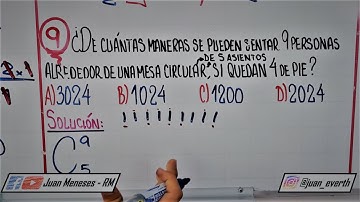 9 ¿DE CUÁNTAS MANERAS SE PUEDEN SENTAR 9 PERSONAS
DE 5 ASIENTOS
ALREDEDOR DE UNA MESA CIRCULAR, SI QUEDAN 4 DE PIE?
A) 3024 B) 1024 C) 1200 D) 2024
SOLUCIÓN:
C 9 5
Juan Meneses - RM
@juan_everth